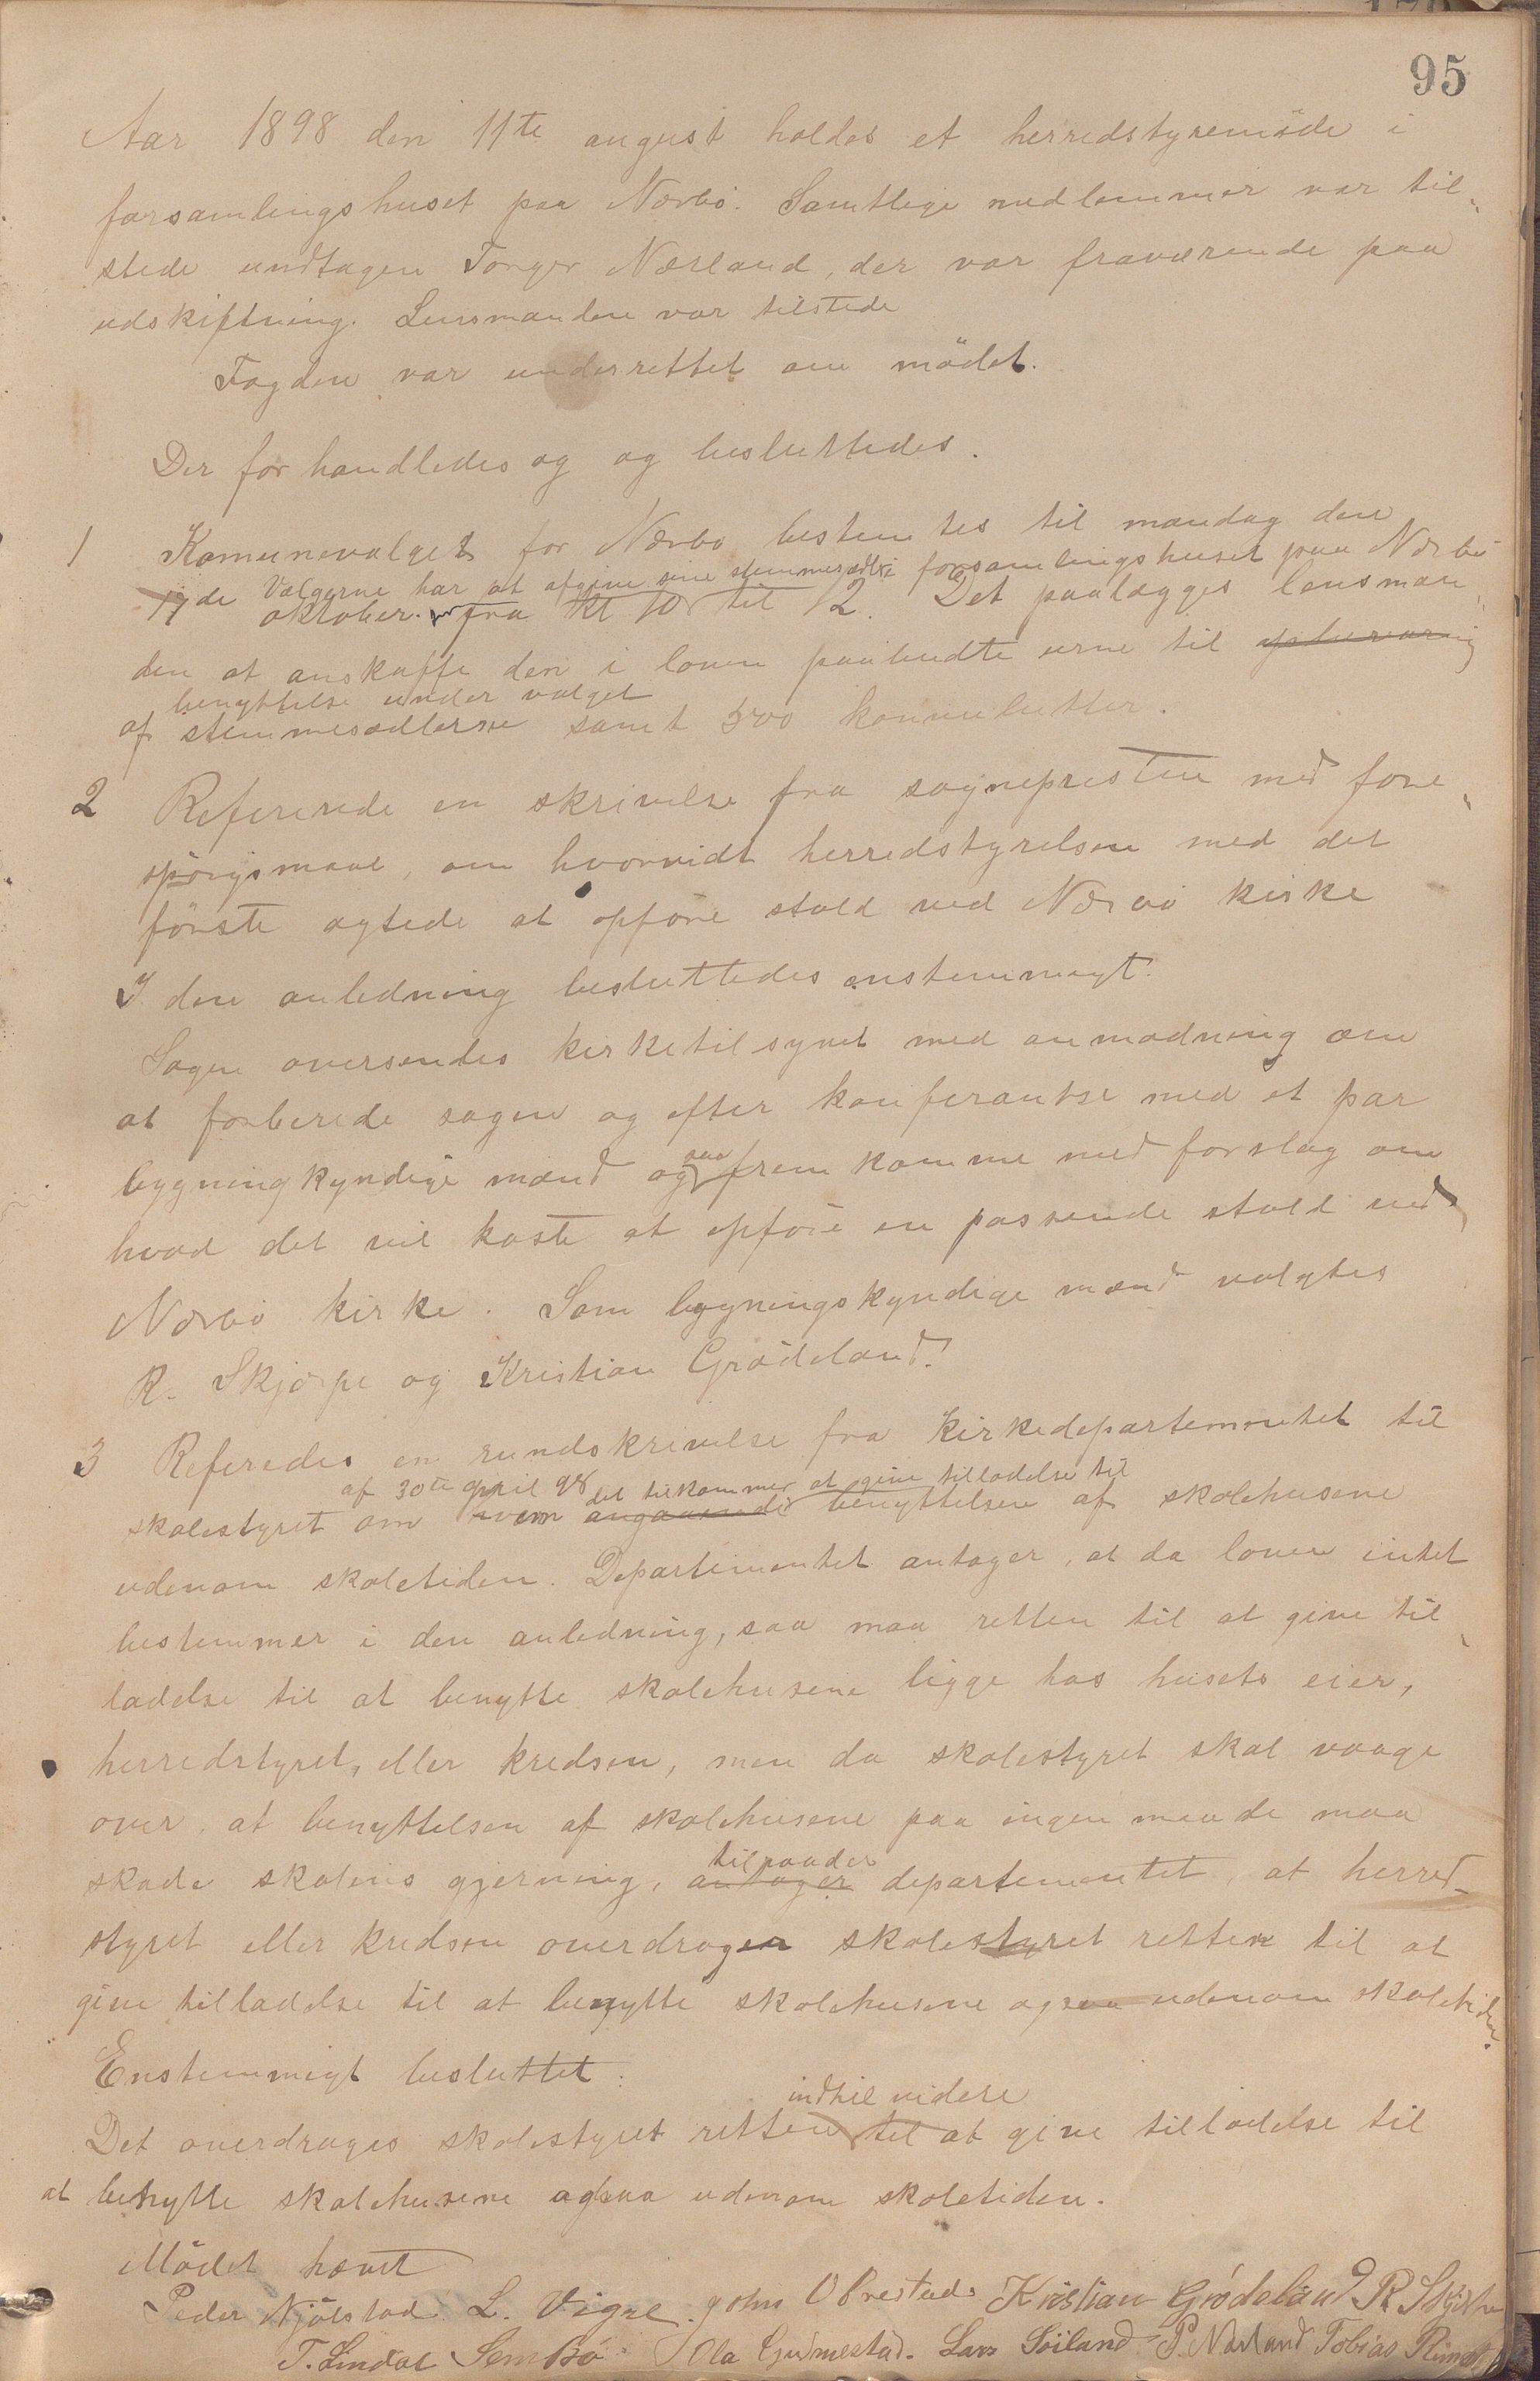 95
Aar 1898 den 11te august holdes et herredstyremöde i
forsamlingshuset paa Nærbö. Samtlige medlemmer var til„
stede undtagen Torger Nærland, der var fraværende paa
udskiftning. Lensmanden var tilstede
Fogden var underrettet om mödet.
Der forhandledes og og besluttedes.
1 Komunevalget for Nærbö bestemtes til mandag den
17de oktober. fra kl 10 til 12. Valgerne har at afgive sine stemmesedler i forsamlingshuset paa Nærbö
Det paalægges lensman„
den at anskaffe den i loven paabudte urne til opbevaring
benyttelse under valget
af stemmesedlerne samt 500 konvolutter.
2 Refererede en skrivelse fra sognepresten med fore„
spörgsmaal, om hvorvidt herredstyrelsen med det
förste agtede at opföre stald ved Nærbö kirke
I den anledning besluttedes enstemmigt:
Sagen oversendes kirketilsynet med anmodning om
at forberede sagen og efter konferantse med et par
bygningkyndige mænd ogsaa fremkomme med forslag om
hvad det vil koste at opföre en passende stald ved
Nærbö kirke. Som bygningskyndige mænd valgtes
R. Skjærpe og Kristian Grödeland.
3 Referedes en rundskrivelse fra Kirkedepartementet til
af 30te april 98 det tilkommer at give tilladelse til
skolestyret om hvem angaaende benyttelsen af skolehusene
udenom skoletiden. Departementet antager, at da loven intet
bestemmer i den anledning, saa maa retten til at give til„
ladelse til at benytte skolehusene ligge hos husets eier,
herredstyret, eller kredsen, men da skolestyret skal vaage
over, at benyttelsen af skolehusene paa ingen maade maa
tilraader
skade skolens gjerning, antager departementet, at herred-
styret eller kredsen overdrager skolestyret retten til at
give tilladelse til at benytte skolehusene ogsaa udenom skoletiden.
Enstemmigt besluttet:
indtil videre
Det overdrages skolestyret retten til at give tilladelse til
at benytte skolehusene ogsaa udenom skoletiden.
Mödet hævet
Peder Njölstad. L. Vigre. John Obrestad. Kristian Grödeland R Skjærpe
T. Lindal Sem Bö Ola Gudmestad. Lars Söiland P. Nærland Tobias